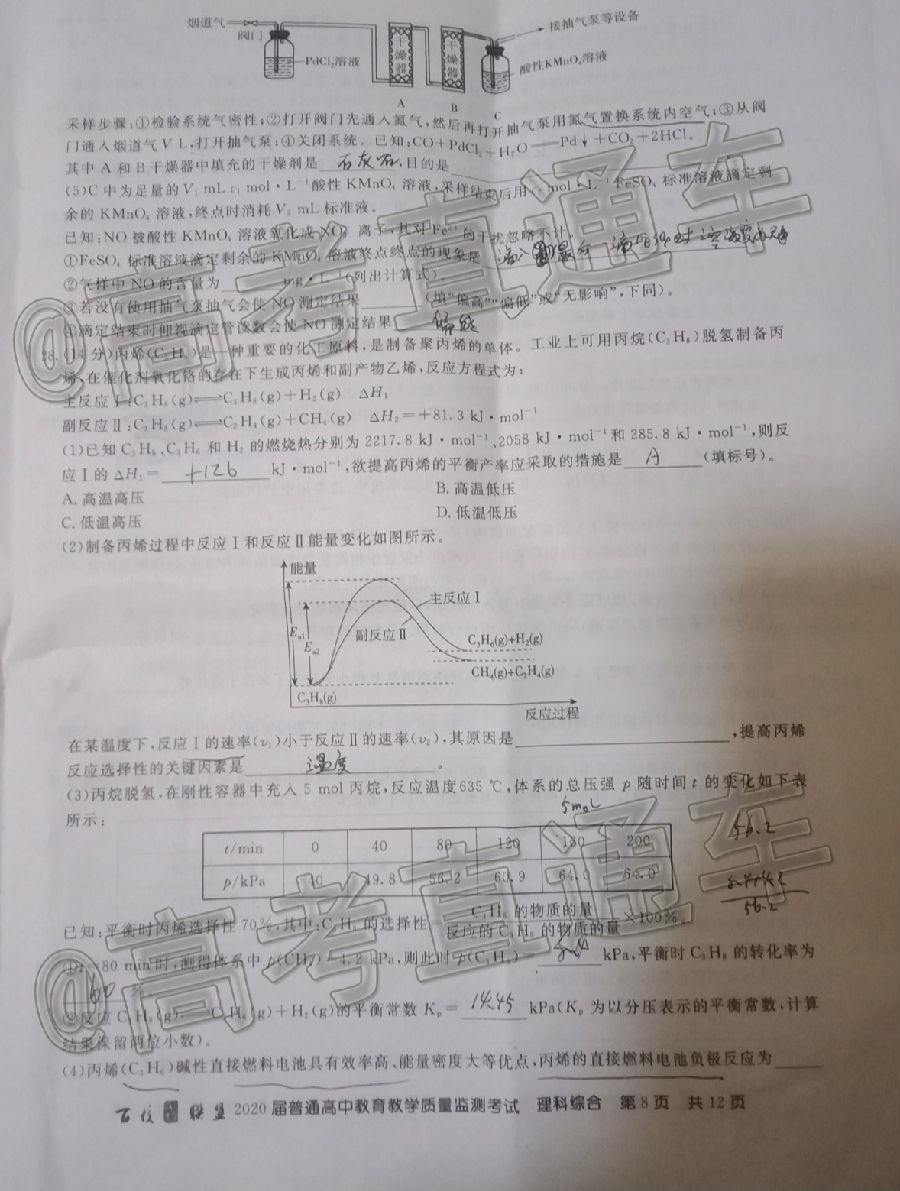 烟道气
接抽气泵等设备
阀门
PdCl₂溶液
干燥器
干燥器
酸性KMnO₄溶液
A
B
C
采样步骤:①检验系统气密性;②打开阀门先通入氮气,然后再打开抽气泵用氮气置换系统内空气;③从阀
门通入烟道气V L,打开抽气泵;④关闭系统。已知:CO+PdCl₂+H₂O══Pd↓+CO₂+2HCl。
其中A和B干燥器中填充的干燥剂是 石灰石,目的是
(5)C中为足量的V₁ mL c₁ mol·L⁻¹酸性KMnO₄溶液,采样结束后用 mol·L⁻¹ FeSO₄标准溶液滴定剩
余的KMnO₄溶液,终点时消耗V₂ mL标准液。
已知:NO被酸性KMnO₄溶液氧化成NO₃⁻离子,其对Fe²⁺的干扰忽略不计。
①FeSO₄标准溶液滴定剩余的KMnO₄溶液终点终点的现象是
②气样中NO的含量为 mg·L⁻¹(列出计算式)。
③若没有使用抽气泵抽气会使NO测定结果 (填“偏高”“偏低”或“无影响”,下同)。
④滴定结束时仰视滴定管读数会使NO测定结果 偏低
28.(14分)丙烯(C₃H₆)是一种重要的化工原料,是制备聚丙烯的单体。工业上可用丙烷(C₃H₈)脱氢制备丙
烯,在催化剂氧化铬的存在下生成丙烯和副产物乙烯,反应方程式为:
主反应Ⅰ:C₃H₈(g)⇌C₃H₆(g)+H₂(g) ΔH₁
副反应Ⅱ:C₃H₈(g)⇌C₂H₄(g)+CH₄(g) ΔH₂=+81.3 kJ·mol⁻¹
(1)已知C₃H₈、C₃H₆和H₂的燃烧热分别为2217.8 kJ·mol⁻¹、2058 kJ·mol⁻¹和285.8 kJ·mol⁻¹,则反
应Ⅰ的ΔH₁= +126 kJ·mol⁻¹,欲提高丙烯的平衡产率应采取的措施是 A (填标号)。
A.高温高压 B.高温低压
C.低温高压 D.低温低压
(2)制备丙烯过程中反应Ⅰ和反应Ⅱ能量变化如图所示。
能量
主反应Ⅰ
副反应Ⅱ
Eₐ₁
Eₐ₂
C₃H₆(g)+H₂(g)
CH₄(g)+C₂H₄(g)
C₃H₈(g)
反应过程
在某温度下,反应Ⅰ的速率(v₁)小于反应Ⅱ的速率(v₂),其原因是 ,提高丙烯
反应选择性的关键因素是 温度 。
(3)丙烷脱氢,在刚性容器中充入5 mol丙烷,反应温度635 ℃,体系的总压强p随时间t的变化如下表
5mol
所示:
56.2
t/min 0 40 80 120 180 200
p/kPa 40 49.8 56.2 60.9 64.0 64.0
56.2
已知:平衡时丙烯选择性70%,其中:C₃H₆的选择性= C₃H₆的物质的量 / 反应的C₃H₈的物质的量 ×100%。
①t=80 min时,测得体系中p(CH₄)=4.2 kPa,则此时p(C₃H₆)= kPa,平衡时C₃H₈的转化率为
60 %。
②反应C₃H₈(g)⇌C₃H₆(g)+H₂(g)的平衡常数Kₚ= 14.45 kPa(Kₚ为以分压表示的平衡常数,计算
结果保留两位小数)。
(4)丙烯(C₃H₆)碱性直接燃料电池具有效率高、能量密度大等优点,丙烯的直接燃料电池负极反应为
百校联盟 2020届普通高中教育教学质量监测考试 理科综合 第8页 共12页
@高考直通车
@高考直通车